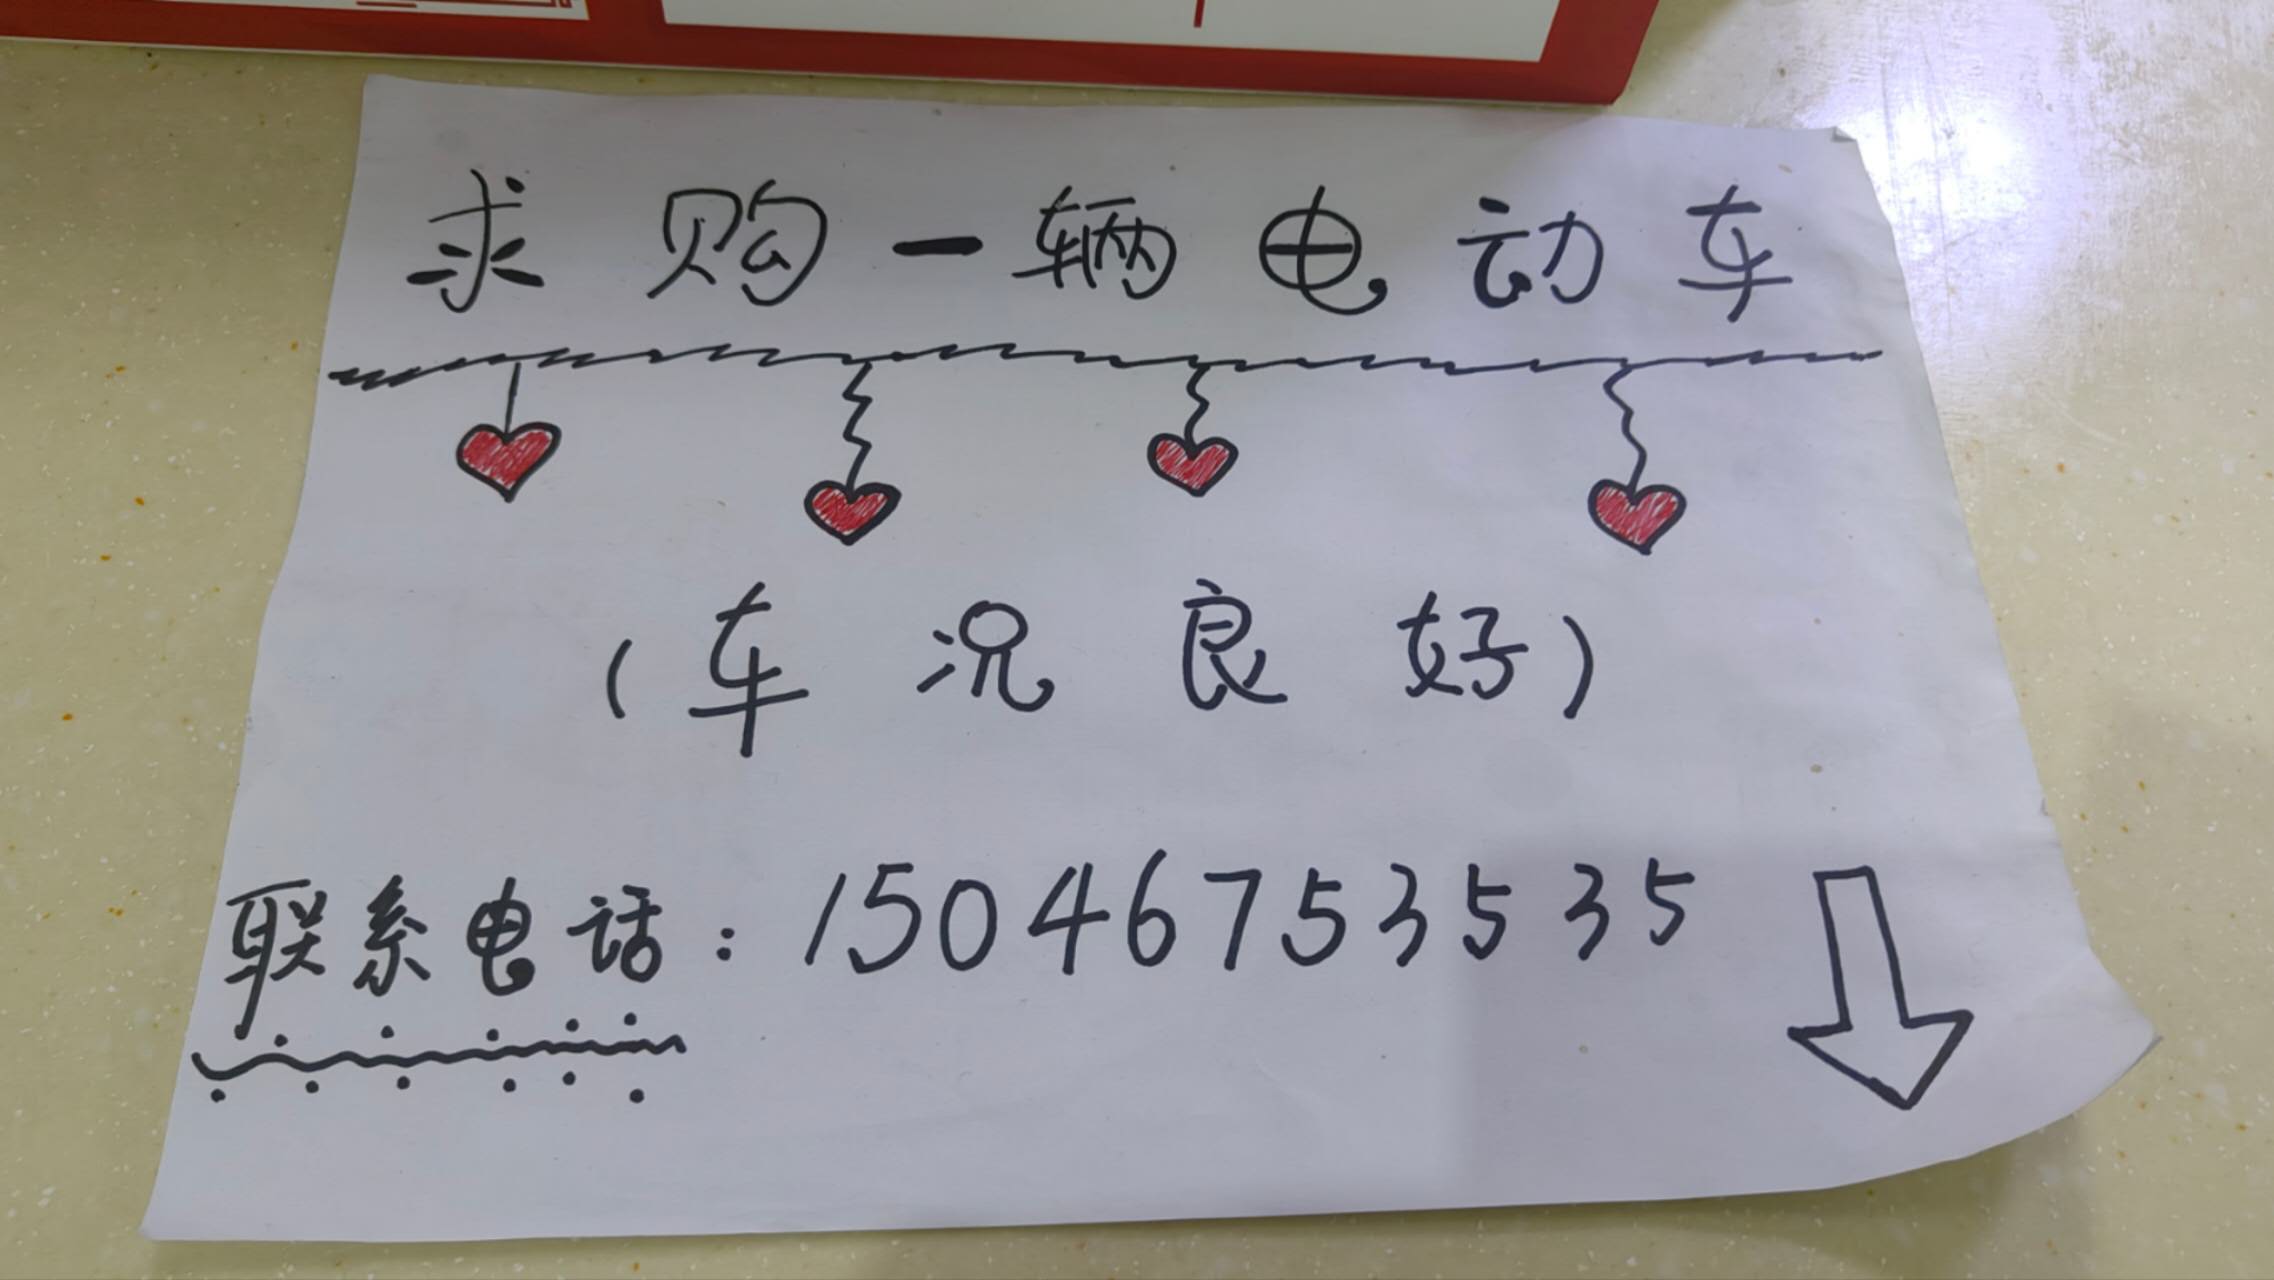 求购一辆电动车
（车况良好）
联系电话：15046753535